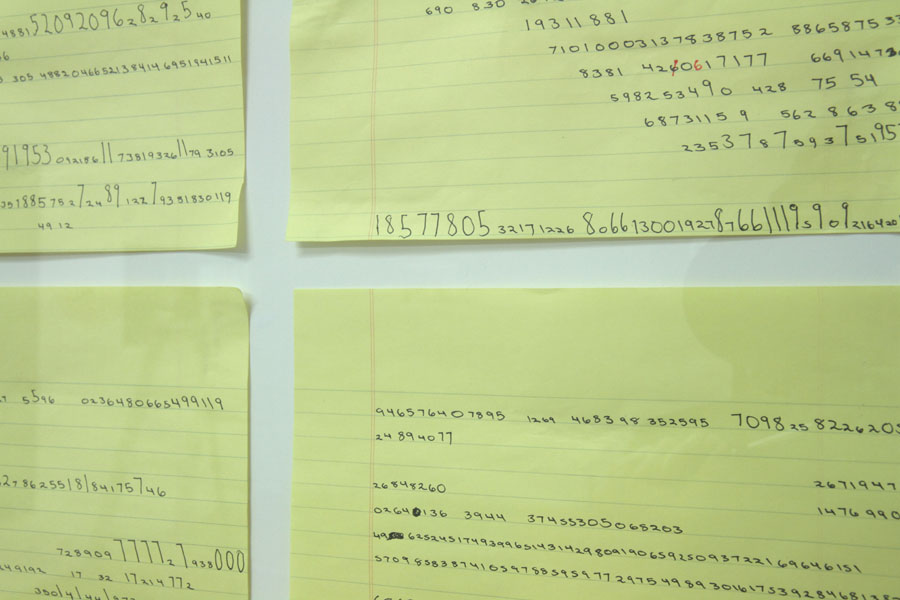 488152092096282925 40
305 4882046652138414 6951941511
91953 092186 11 7381932611 79 3105
351885 75 2 7 24 89 122 7 9351830119
49 12
690 830
19311 881
71010003137838752 88658753
8381 4260617177 6691473
598253490 428 75 54
68731159 562 863 8
2353787093751957
18577805 32171226 80661300192787661119590 9216420
5596 0236480665499119
278625518184175746
728909 7777 2 7 938000
249192 17 32 1721477 2
9465764 07895 1269 4683 98 352595 7098 25 8226205
24 894077
26848260 2671947
02640136 3944 37455305065203 1476 990
49 6252451749399651431429809190659250937221696461 51
5709 8583874105978859597729754989301617539284681387